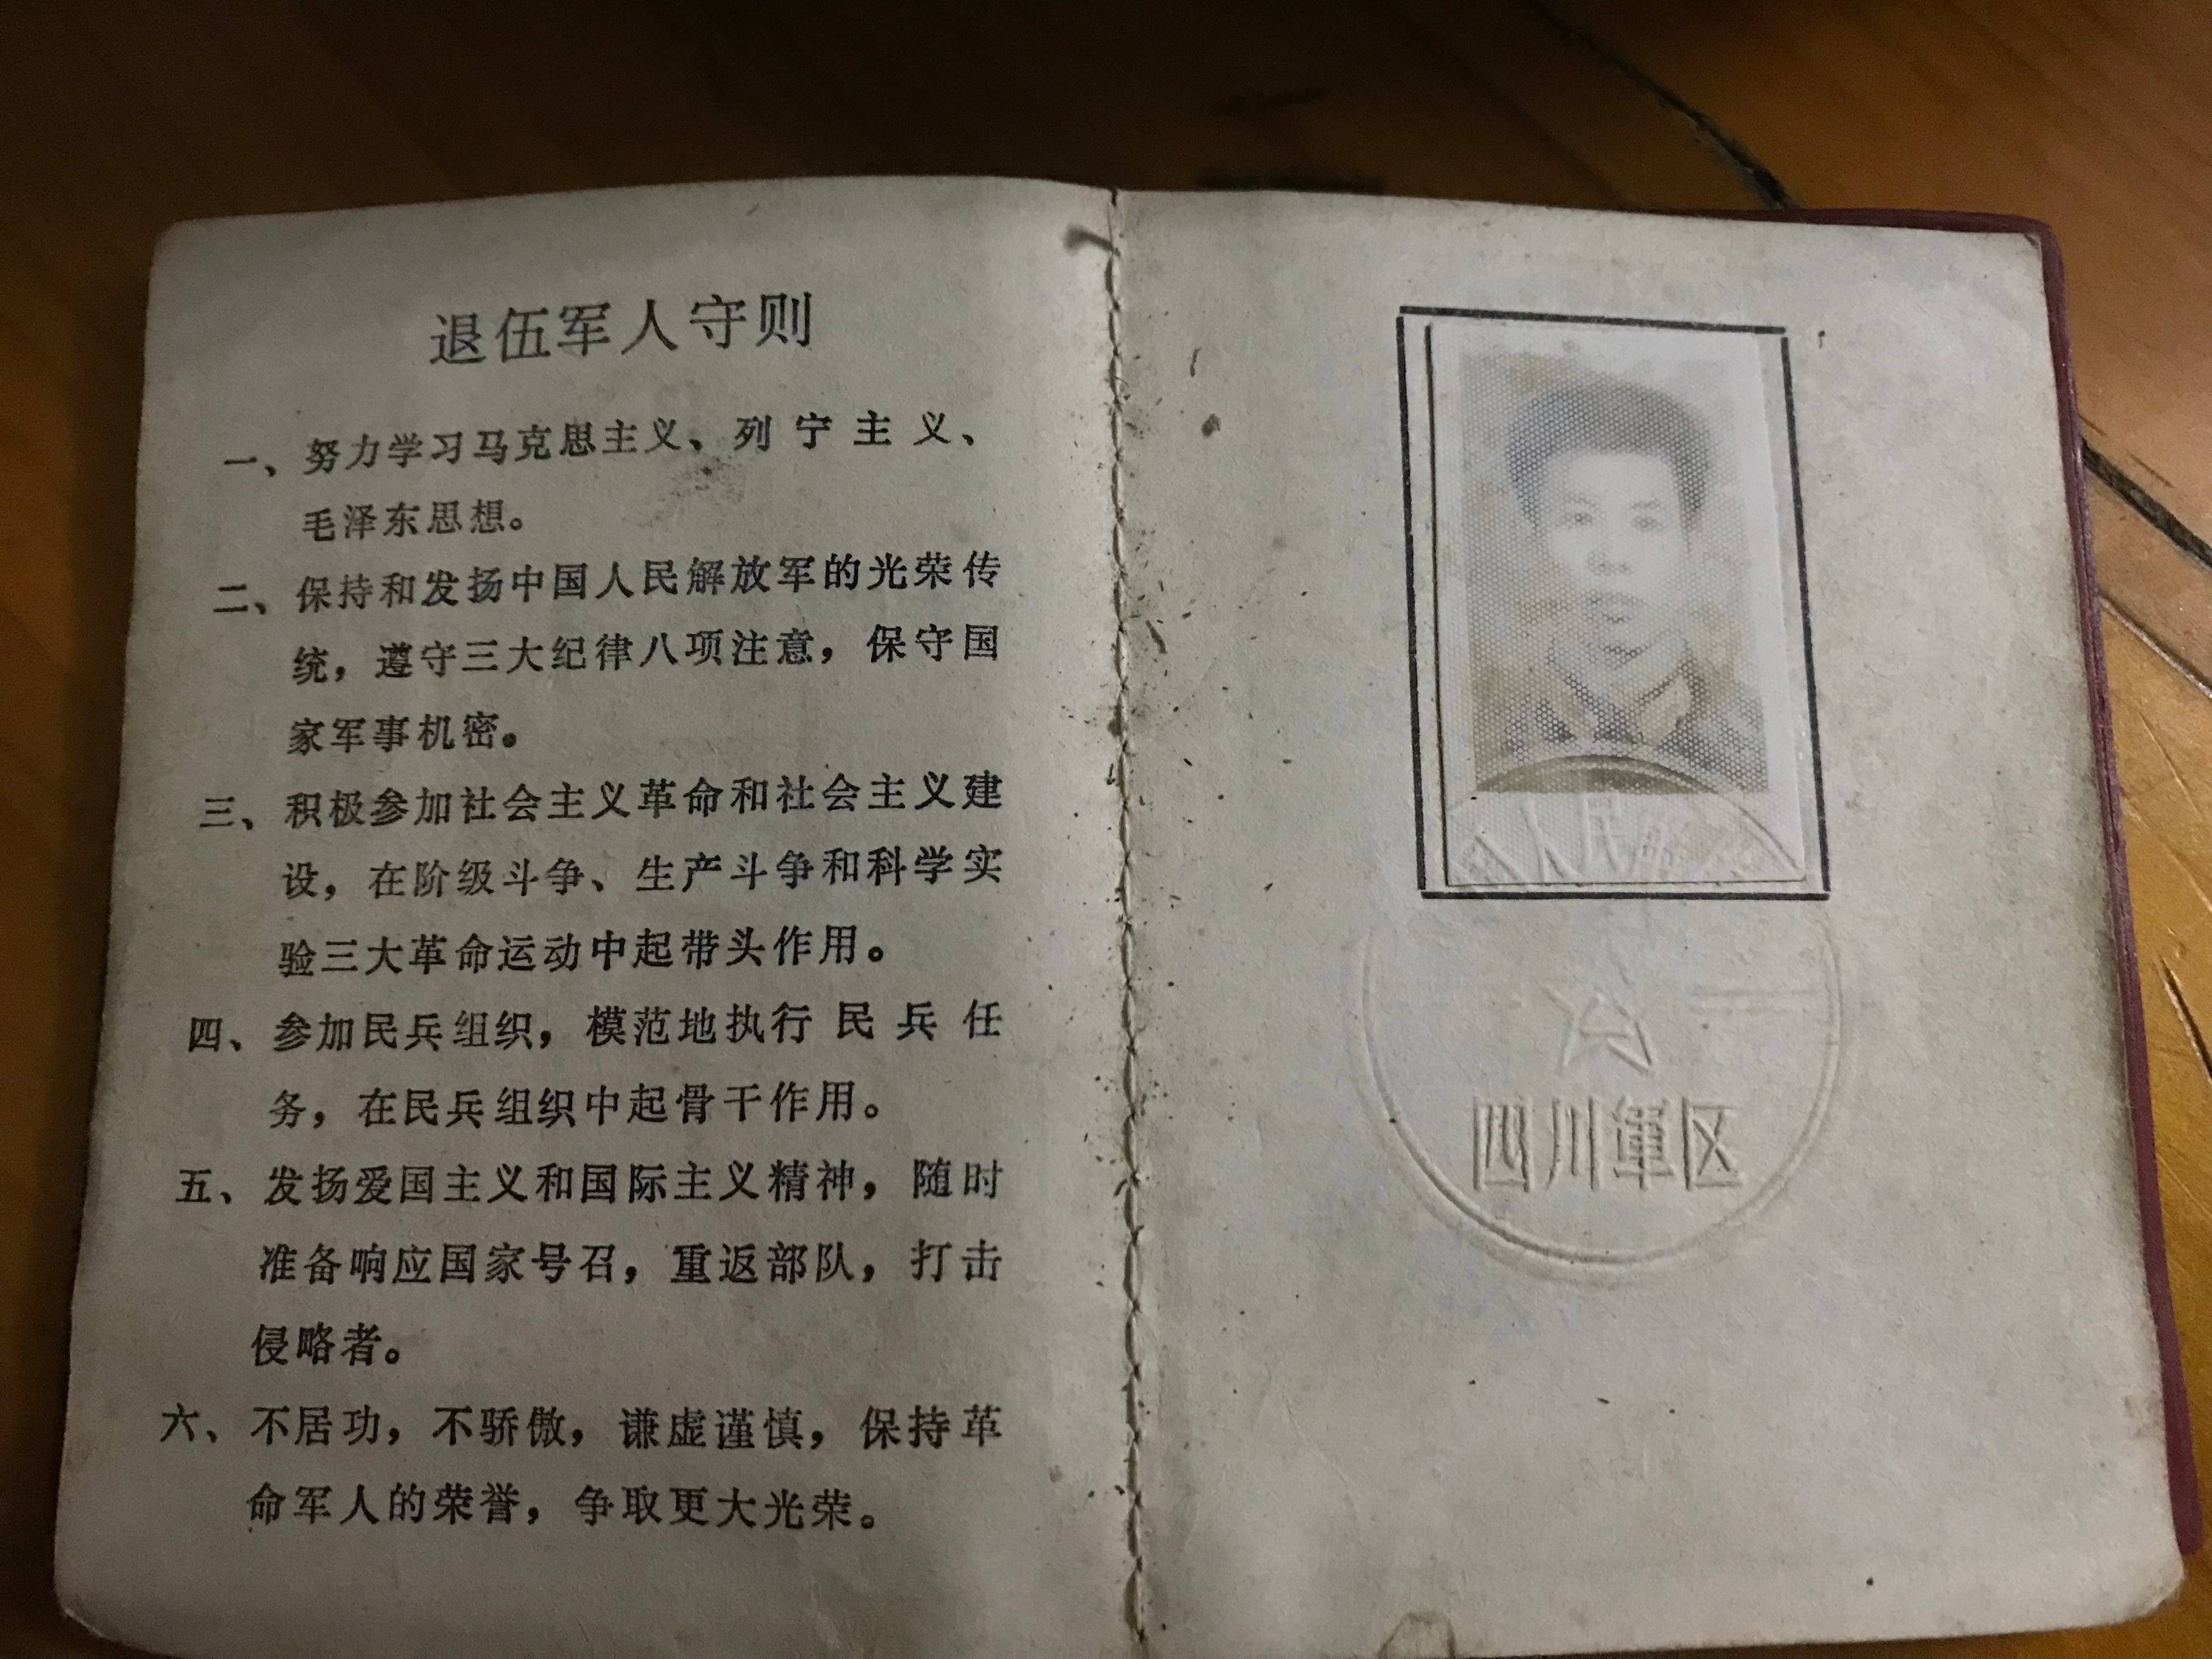 退伍军人守则
一、努力学习马克思主义、列宁主义、
毛泽东思想。
二、保持和发扬中国人民解放军的光荣传
统，遵守三大纪律八项注意，保守国
家军事机密。
三、积极参加社会主义革命和社会主义建
设，在阶级斗争、生产斗争和科学实
验三大革命运动中起带头作用。
四、参加民兵组织，模范地执行民兵任
务，在民兵组织中起骨干作用。
五、发扬爱国主义和国际主义精神，随时
准备响应国家号召，重返部队，打击
侵略者。
六、不居功，不骄傲，谦虚谨慎，保持革
命军人的荣誉，争取更大光荣。
人民解
四川軍区